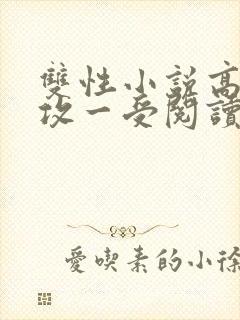 雙性小說高
攻一受閱讀
愛喫素的小徐